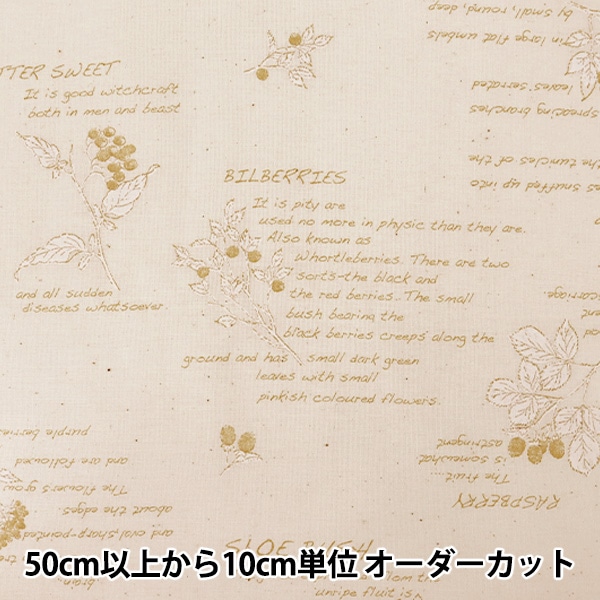 TTER SWEET
It is good witchcraft
both in men and beast
and all sudden
diseases whatsoever
BILBERRIES
It is pity are
used no more in physic than they are.
Also known as
Whortleberries. There are two
sorts-the black and
the red berries. The small
bush bearing the
black berries creeps along the
ground and has small dark green
leaves with small
pinkish coloured flowers.
by small, round, deep
in large flat umbels
leaves serrated
spreading branches
the tunicles of the
es snuffed up into
RASPBERRY
The fruit...
is somewhat
astringent
The flowers grow
and are followed
purple berries
about the edges
and oval, sharp-pointed
SLOE BUSH
brain.
unripe fruit is
50cm以上から10cm単位 オーダーカット